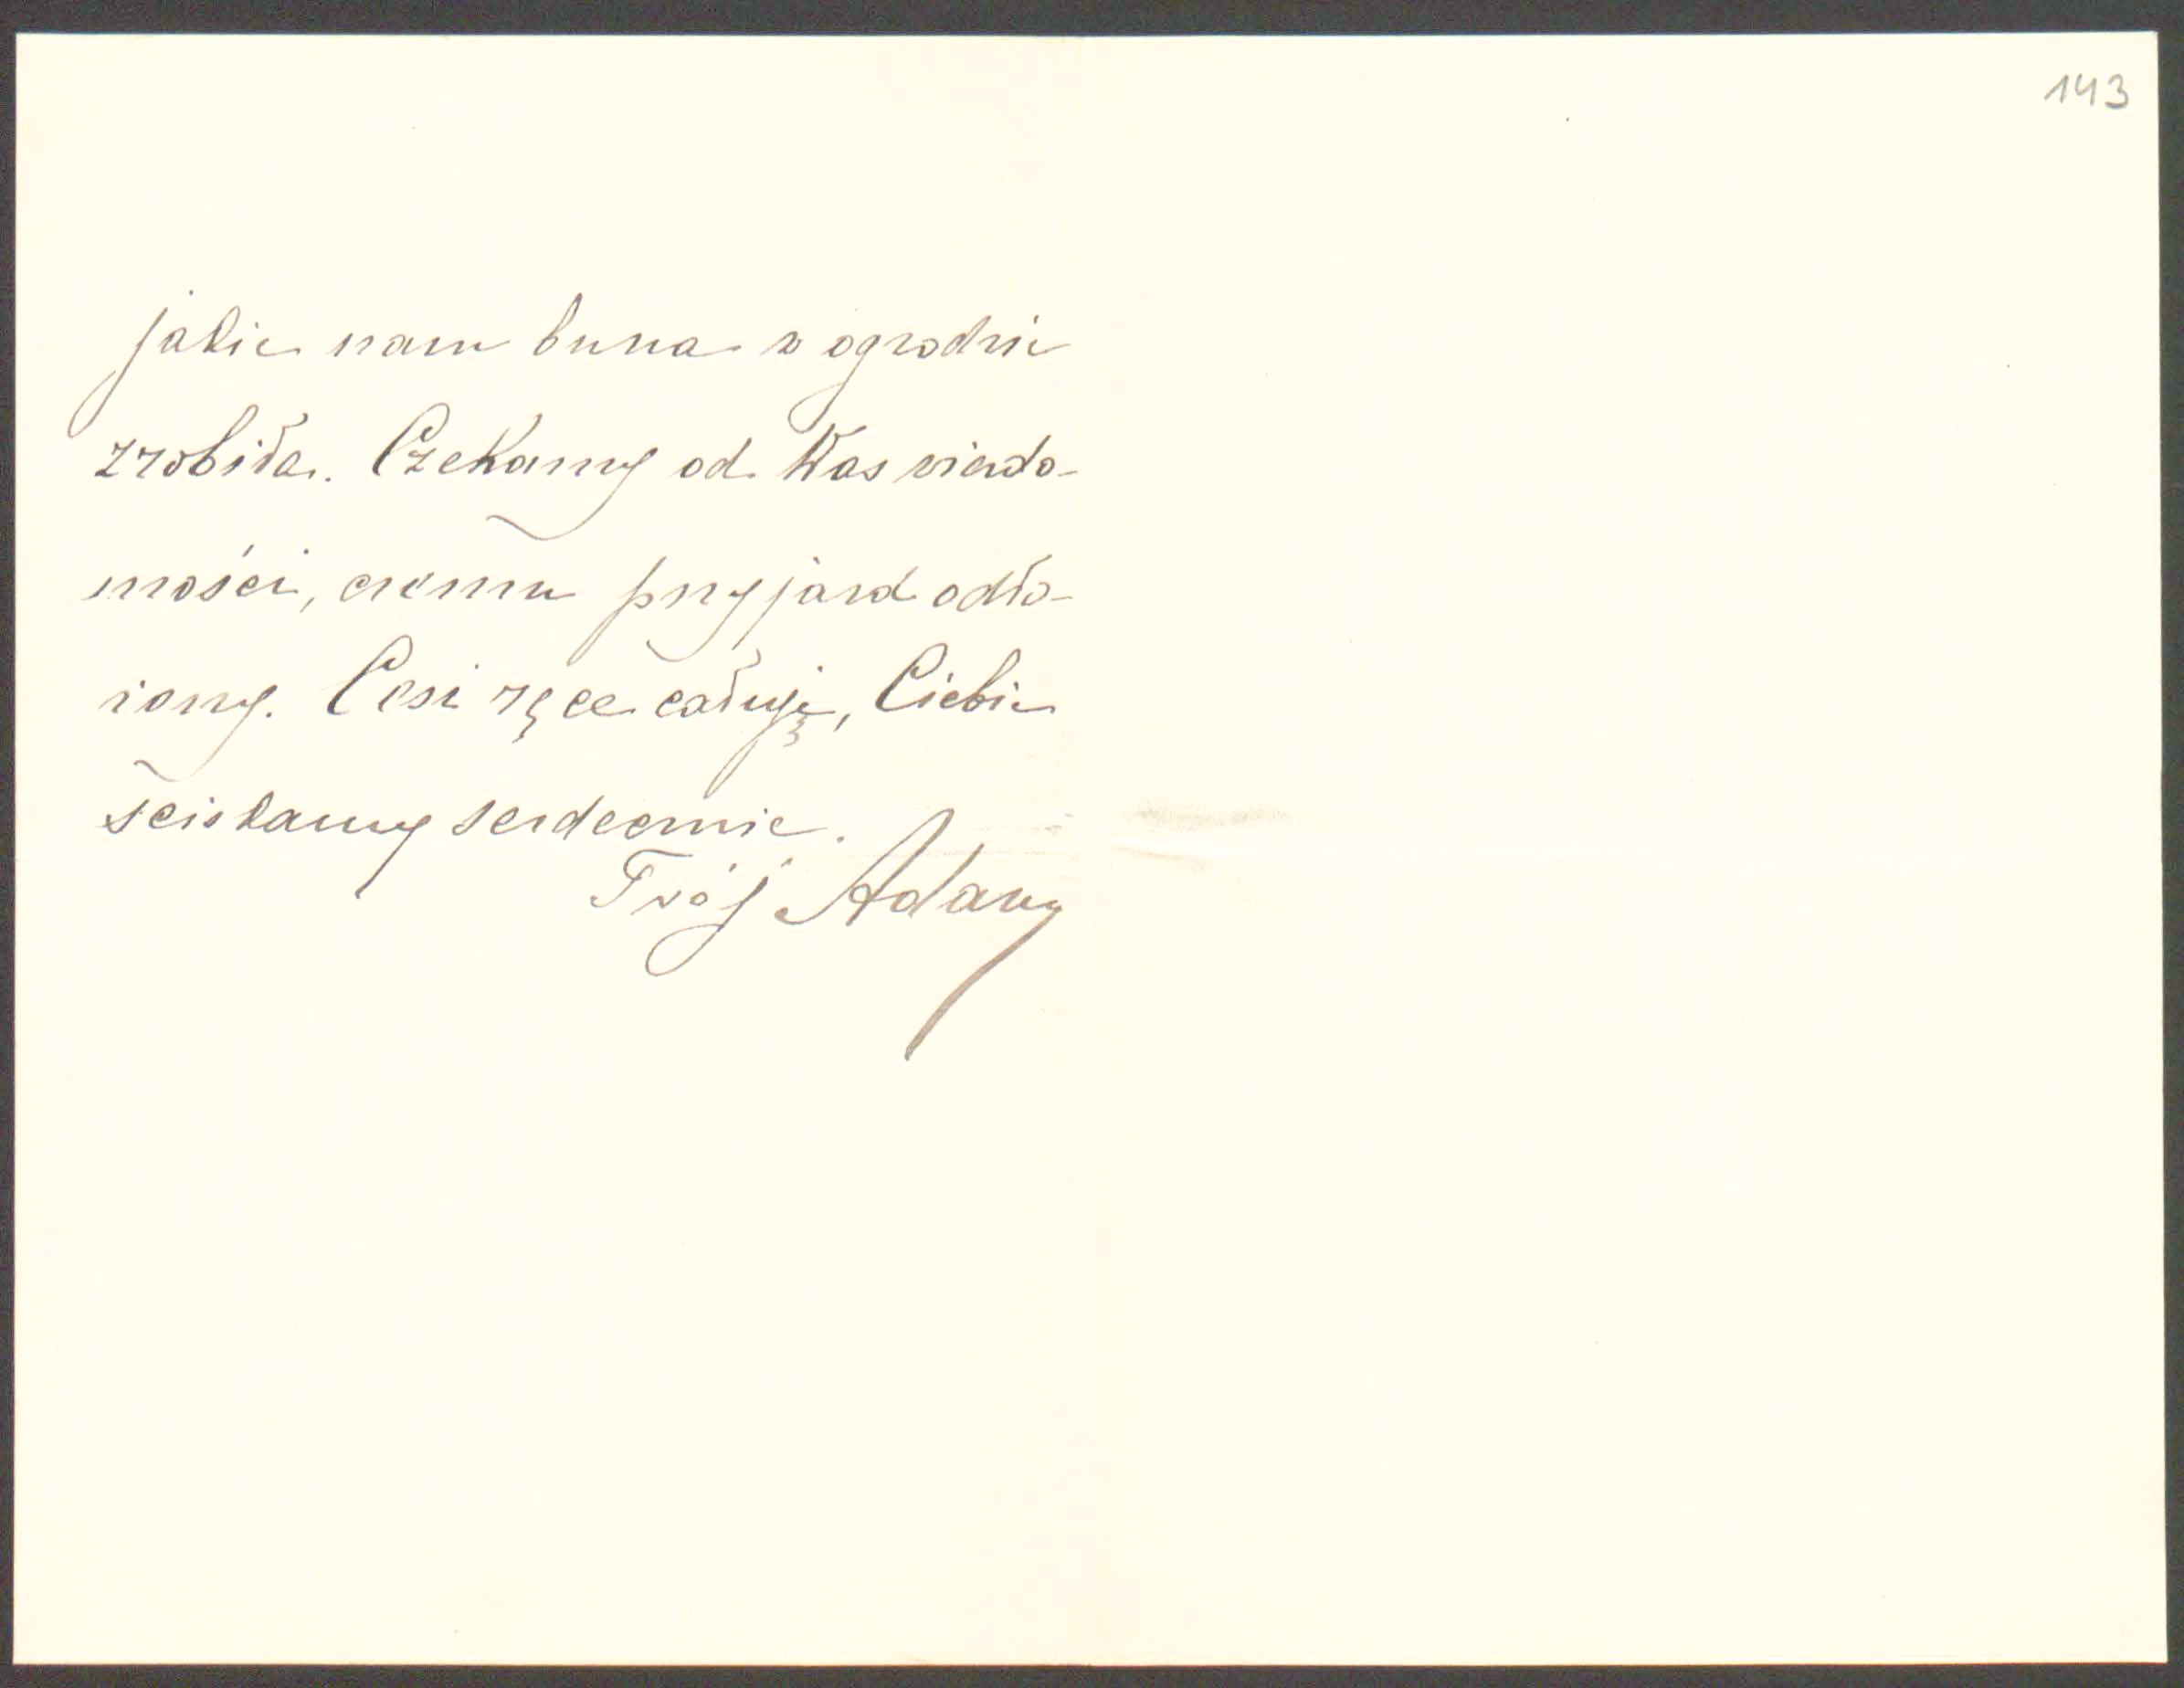 143
jakie nam burza w ogrodzie
zrobiła. Czekamy od Was wiado-
mości, czemu przyjazd odło-
żony. Cesi ręce całuję, Ciebie
ściskamy serdecznie.
Twój Adam